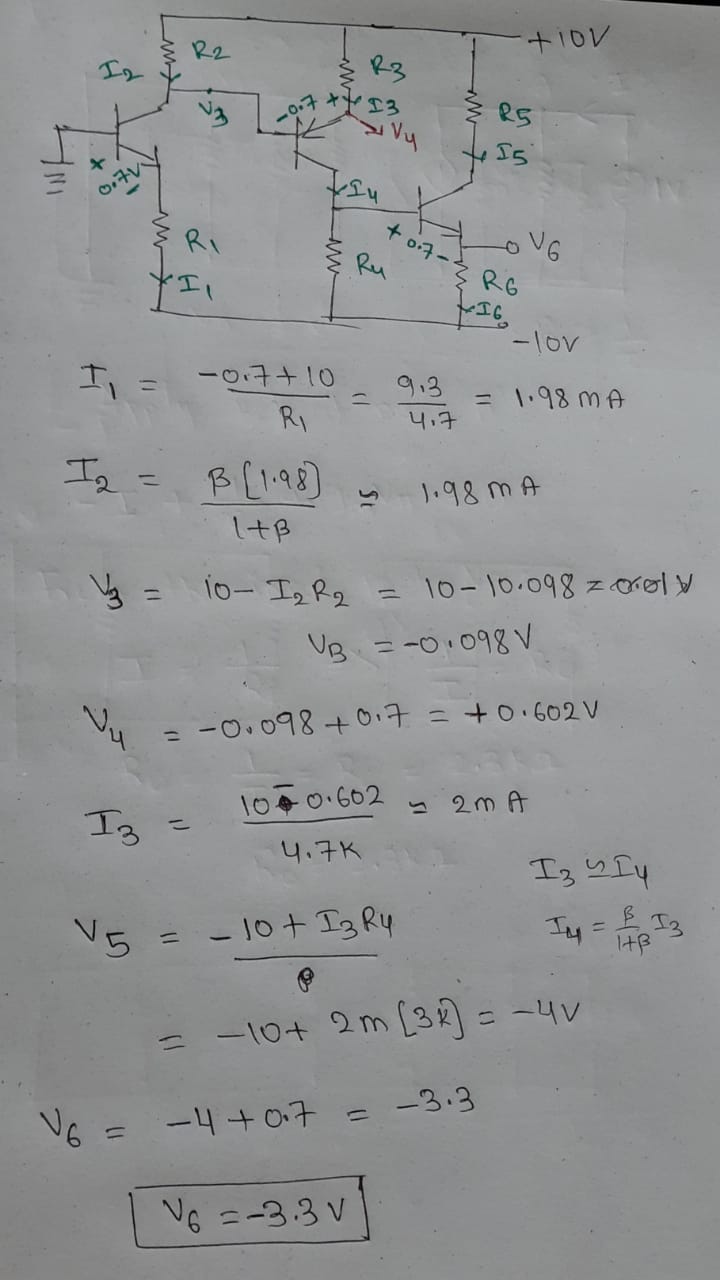 +10V
R2
I2
R3
V3
-0.7 +
I3
V4
R5
I5
I4
+
0.7V
-
R1
I1
R4
+
0.7 -
V6
R6
I6
-10V
I1 = -0.7+10 / R1 = 9.3 / 4.7 = 1.98 mA
I2 = β[1.98] / 1+β ≃ 1.98 mA
V3 = 10- I2R2 = 10-10.098 =
VB = -0.098V
V4 = -0.098+0.7 = +0.602V
I3 = 10-0.602 / 4.7K ≃ 2mA
I3 ≃ I4
V5 = -10+ I3R4
I4 = β / 1+β I3
= -10+ 2m [3K] = -4V
V6 = -4+0.7 = -3.3
V6 = -3.3 V